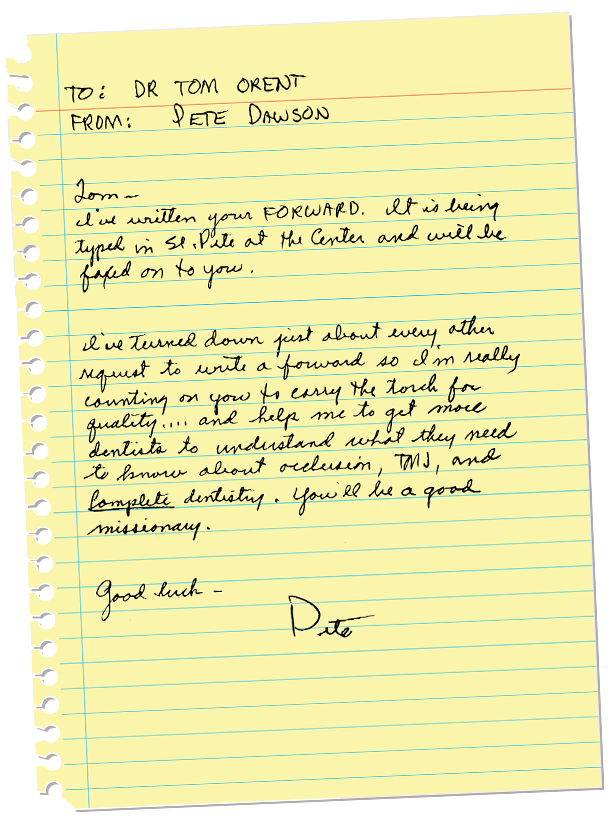 TO: DR TOM ORENT
FROM: PETE DAWSON
Tom —
I've written your FORWARD. It is being
typed in St. Pete at the Center and will be
faxed on to you.
I've turned down just about every other
request to write a forward so I'm really
counting on you to carry the torch for
quality.... and help me to get more
dentists to understand what they need
to know about occlusion, TMJ, and
Complete dentistry. You'll be a good
missionary.
Good luck —
Pete